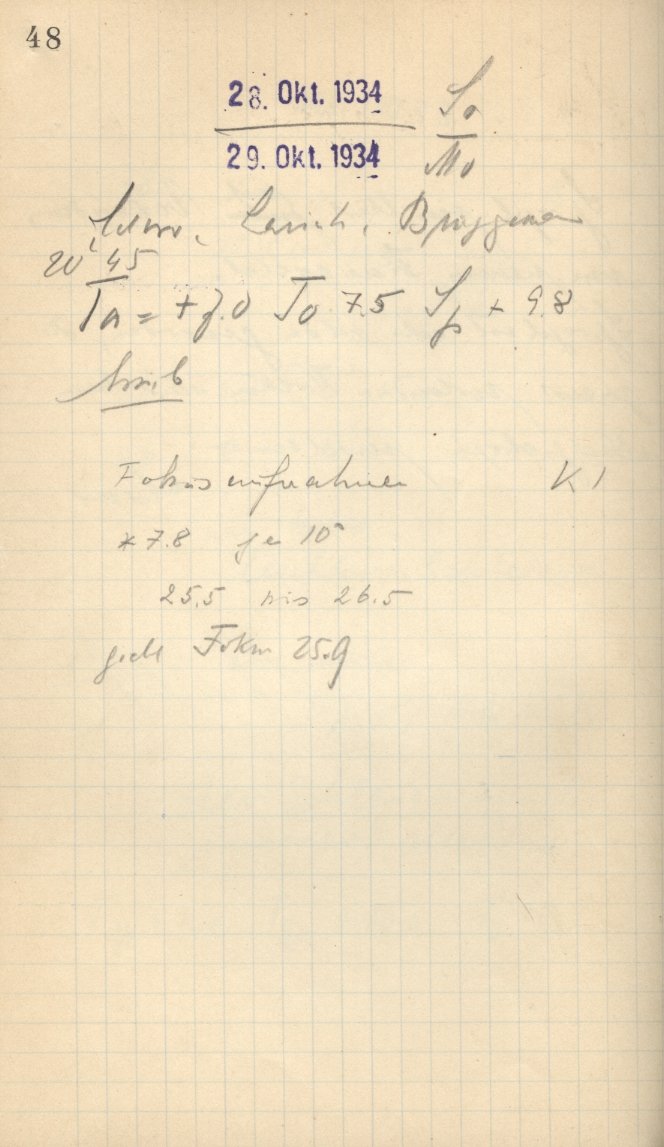 48
28. Okt. 1934 So
29. Okt. 1934 Mo
Brüggema
20 45
Ta = + 7.0 To 7.5 Sp + 9.8
Fokusaufnahmen K 1
* 7.8 je 10s
25.5 bis 26.5
gibt Fokus 25.9